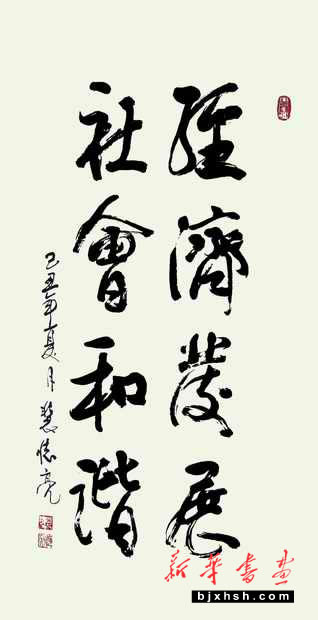 經濟發展
社會和諧
己丑年夏月
新華書画
bjxhsh.com